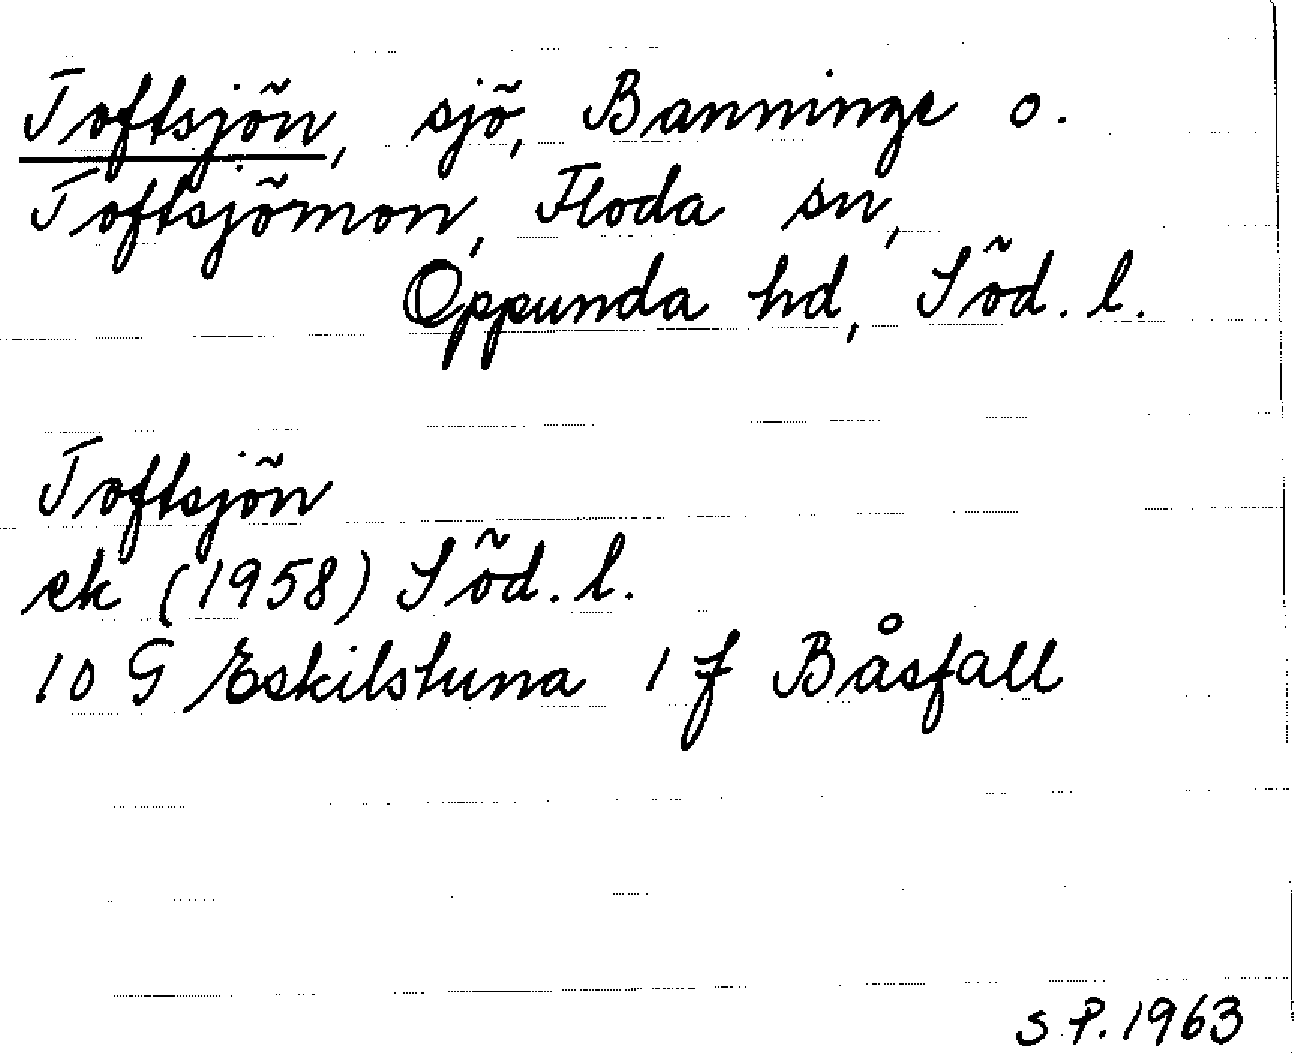 Toftsjön, sjö, Banninge o.
Toftsjömon, Floda sn,
Oppunda hd, Söd. l.
Toftsjön
ek (1958) Söd. l.
10 G Eskilstuna 1 f Båsfall
S.P. 1963